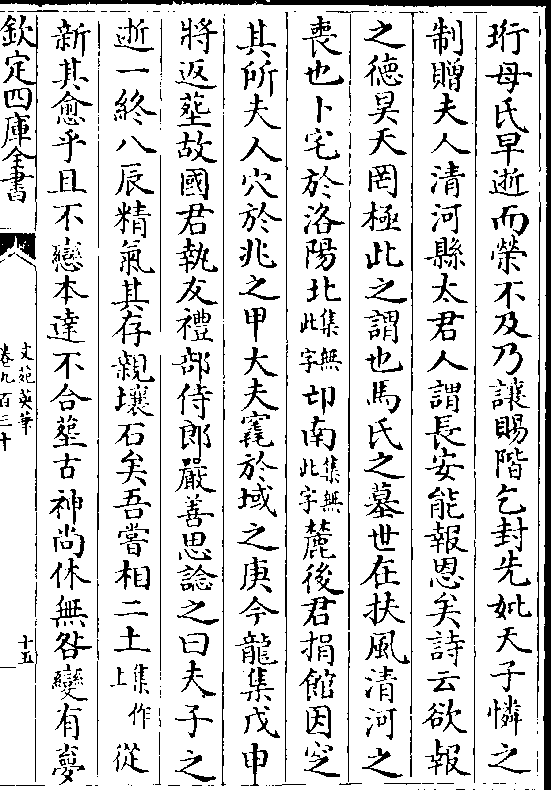 珩母氏早逝而榮不及乃讓賜階乞封先妣天子憐之
制贈夫人清河縣太君人謂長安能報恩矣詩云欲報
之德昊天罔極此之謂也馬氏之墓世在扶風清河之
喪也卜宅於洛陽北集無此字邙南集無此字麓後君捐館因窆
其所夫人穴於兆之甲大夫窀於域之庚今龍集戊申
將返塟故國君執友禮部侍郎嚴善思諗之曰夫子之
逝一終八辰精氣其存親壤石矣吾嘗相二土集作上從
新其愈乎且不戀本達不合塟古神尚休無咎變有夢
欽定四庫全書
文苑英華
卷九百三十
十五